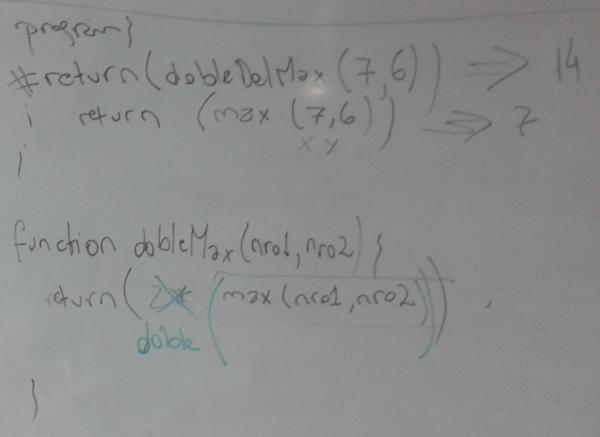 program{
#return(dobleDelMax(7,6)) => 14
return (max (7,6)) => 7
x y
}
function dobleMax(nro1,nro2){
return( 2* (max(nro1,nro2)))
doble
}